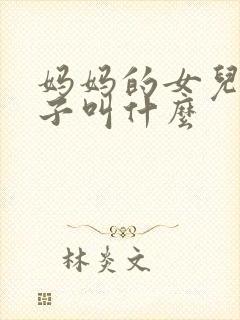 妈妈的女兒
子叫什麼
林炎文